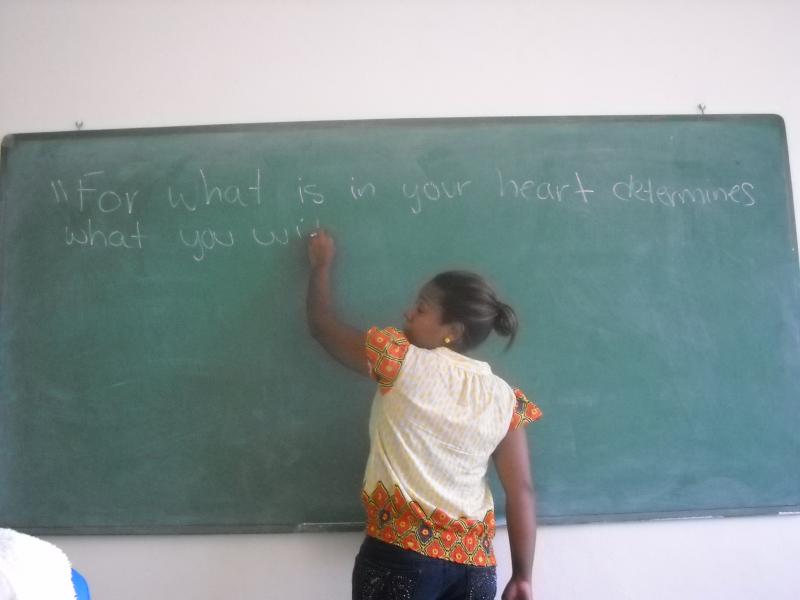 "For what is in your heart determines
what you wil